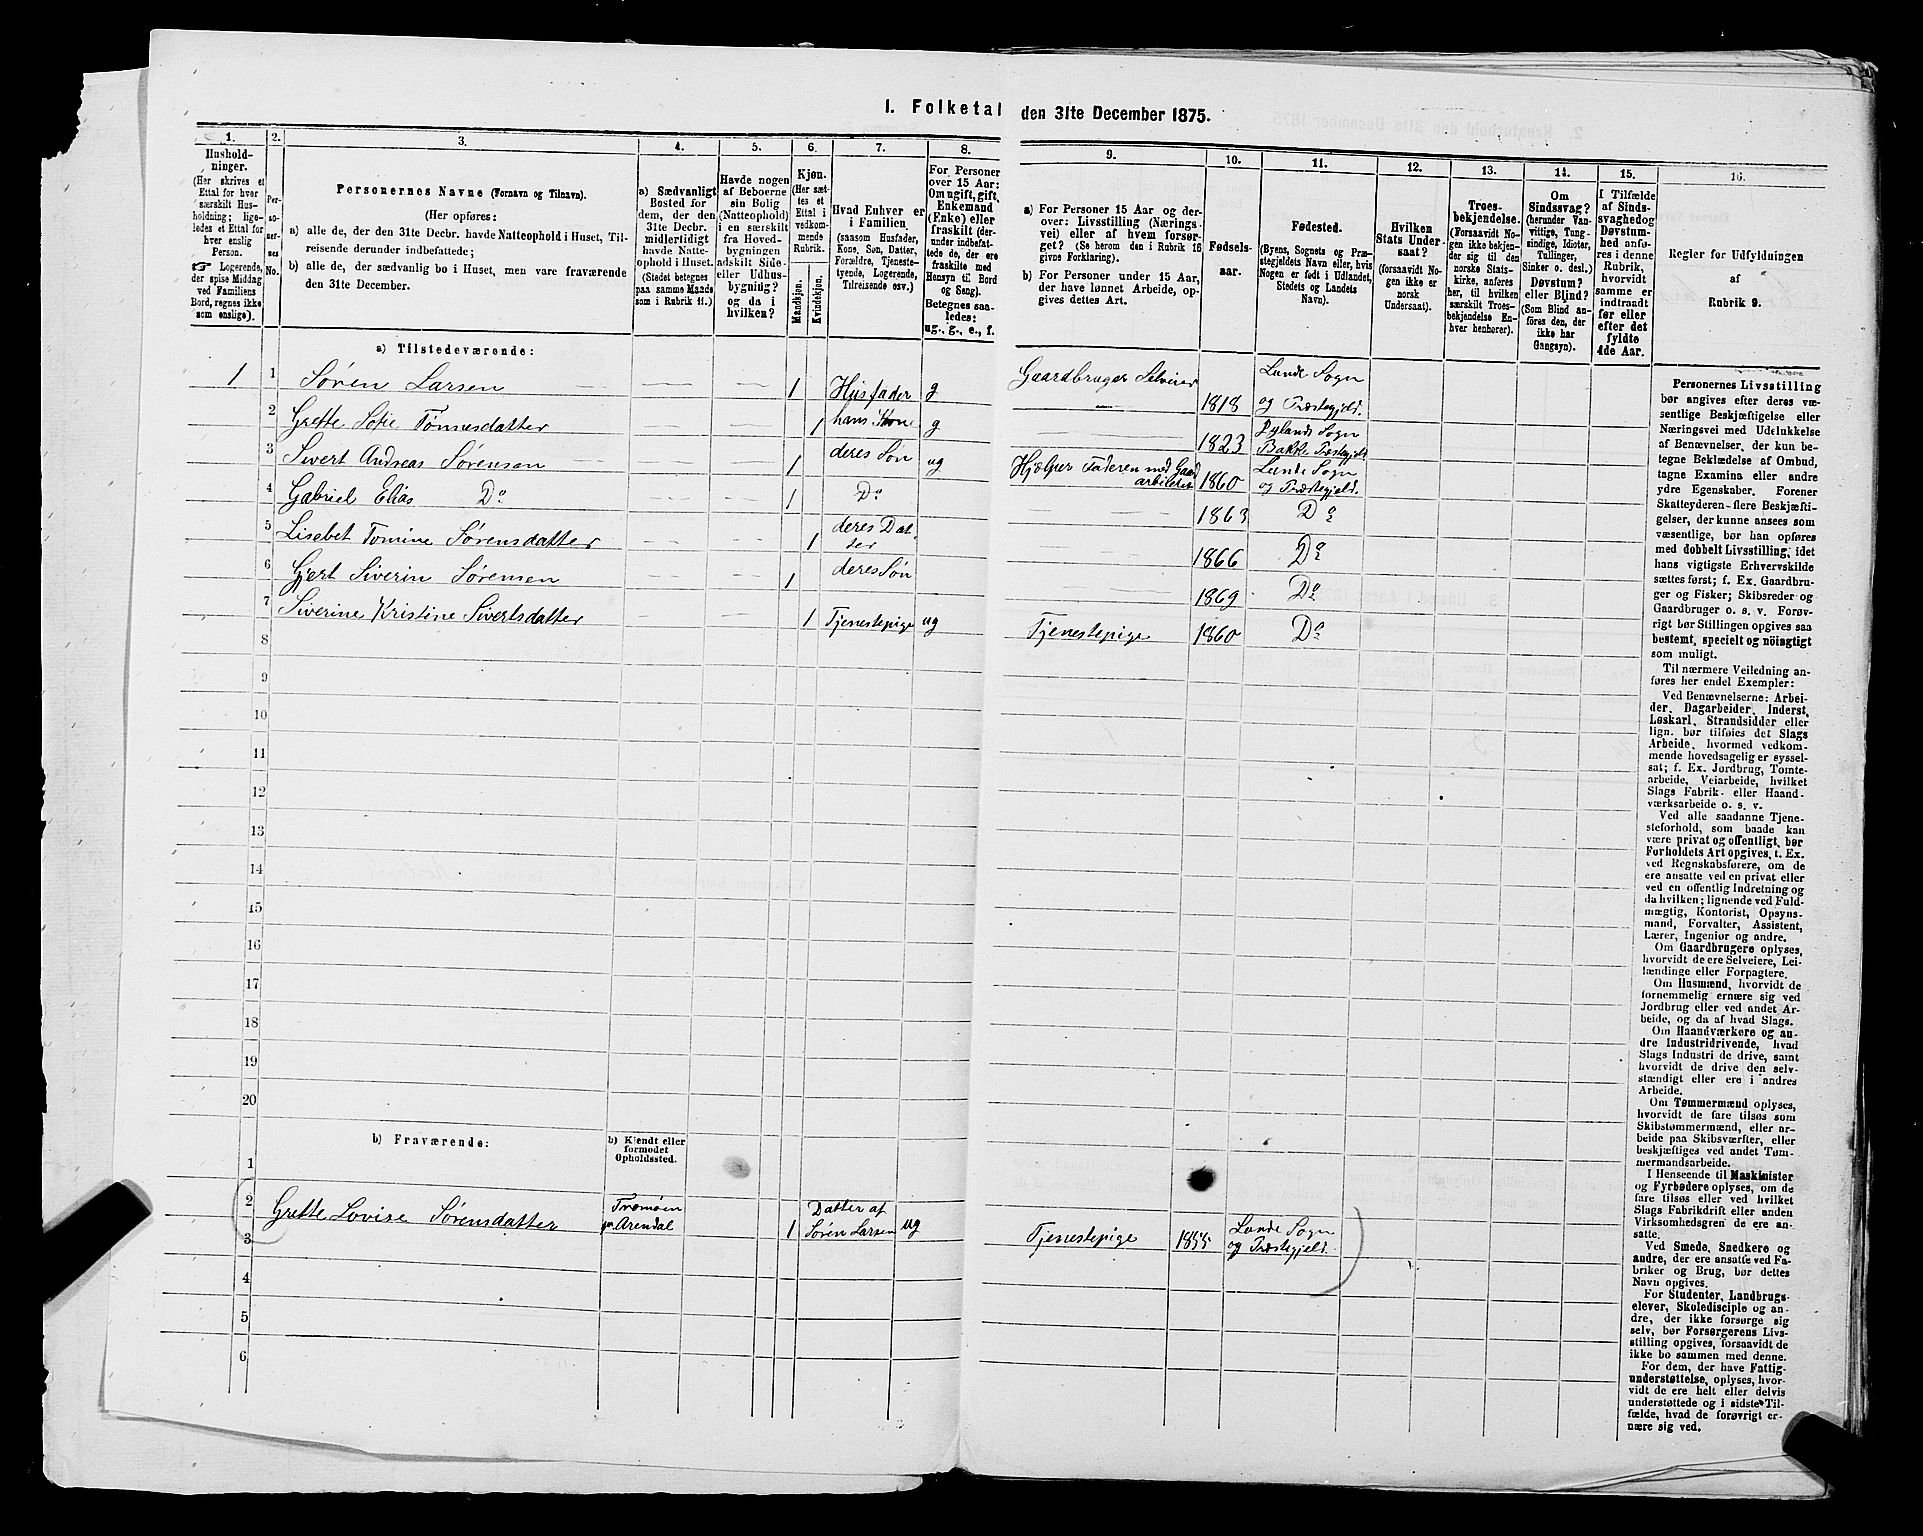 I. Folketal den 31te December 1875.
1.
Hushold-
ninger.
(Her skrives et
Ettal for hver
særskilt Hus-
holdning; lige-
ledes et Ettal for
hver enslig
Person.
☞ Logerende,
der spise Middag
ved Familiens
Bord, regnes ikke
som enslige).
2.
Per-
so-
ner-
nes
No.
3.
Personernes Navne (Fornavn og Tilnavn).
(Her opføres:
a) alle de, der den 31te Decbr. havde Natteophold i Huset, Til-
reisende derunder indbefattede;
b) alle de, der sædvanlig bo i Huset, men vare fraværende
den 31te December.
4.
a) Sædvanligt
Bosted for
dem, der den
31te Decbr.
midlertidigt
havde Natte-
ophold i Huset.
(Stedet betegnes
paa samme Maade
som i Rubrik 11.)
5.
Havde nogen
af Beboerne
sin Bolig
(Natteophold)
i en særskilt
fra Hoved-
bygningen
adskilt Side-
eller Udhus-
bygning?
og da i
hvilken?
6.
Kjøn.
(Her sæt-
tes et
Ettal i
vedkom-
mende
Rubrik.
Mandkjøn.
Kvindekjøn.
7.
Hvad Enhver er
i Familien
(saasom Husfader,
Kone, Søn, Datter,
Forældre, Tjeneste-
tyende, Logerende,
Tilreisende osv.)
8.
For Personer
over 15 Aar:
Om ugift, gift,
Enkemand
(Enke) eller
fraskilt (der-
under indbefat-
tede de, der ere
fraskilte med
Hensyn til Bord
og Seng).
Betegnes saa-
ledes:
ug., g., e., f.
9.
a) For Personer 15 Aar og der-
over: Livsstilling (Nærings-
vei) eller af hvem forsør-
get? (Se herom den i Rubrik 16
givne Forklaring).
b) For Personer under 15 Aar,
der have lønnet Arbeide, op-
gives dettes Art.
10.
Fødsels-
aar.
11.
Fødested.
(Byens, Sognets og Præ-
stegjeldets Navn eller, hvis
Nogen er født i Udlandet,
Stedets og Landets
Navn).
12.
Hvilken
Stats Under-
saat?
(forsaavidt No-
gen ikke er
norsk
Undersaat).
13.
Troes-
bekjendelse.
(Forsaavidt No-
gen ikke bekjen-
der sig til den
norske Stats-
kirke, anføres
her, til hvilken
særskilt Troes-
bekjendelse En-
hver henhører).
14.
Om
Sindssvag?
(herunder Van-
vittige, Tung-
sindige, Idioter,
Tullinger,
Sinker o. desl.)
Døvstum?
eller Blind?
(Som Blind an-
føres den, der
ikke har
Gangsyn).
15.
I Tilfælde
af Sinds-
svaghed og
Døvstum-
hed anfø-
res i denne
Rubrik,
hvorvidt
samme er
indtraadt
før eller
efter det
fyldte
4de Aar.
16.
Regler for Udfyldningen
af
Rubrik 9.
a) Tilstedeværende:
1 1 Søren Larsen — — 1 Husfader g Gaardbruger Selveier 1818 Lunde Sogn og Præstegjeld.
2 Grette Sofie Tønnesdatter 1 hans Kone g — 1823 Bakke Præstegjeld
3 Sivert Andreas Sørensen — — 1 deres Søn ug Hjælper Faderen med Gaardarbeidet 1860 Lunde Sogn og Præstegjeld.
4 Gabriel Elias Do — — 1 Do — 1863 Do
5 Lisebet Tomine Sørensdatter — — 1 deres Datter — 1866 Do
6 Gjert Siverin Sørensen — — 1 deres Søn — 1869 Do
7 Siverine Kristine Sivertsdatter — — 1 Tjenestepige ug Tjenestepige 1860 Do
8
9
10
11
12
13
14
15
16
17
18
19
20
b) Fraværende:
b) Kjendt eller
formodet
Opholdssted.
1
2 Grette Lovise Sørensdatter Tromøen pr Arendal 1 Datter af Søren Larsen ug Tjenestepige 1855 Lunde Sogn og Præstegjeld.
3
4
5
6
Personernes Livsstilling
bør angives efter deres væ-
sentlige Beskjæftigelse eller
Næringsvei med Udelukkelse
af Benævnelser, der kun be-
tegne Beklædelse af Ombud,
tagne Examina eller andre
ydre Egenskaber. Forener
Skatteyderen flere Beskjæfti-
gelser, der kunne ansees som
væsentlige, bør han opføres
med dobbelt Livsstilling, idet
hans vigtigste Erhvervskilde
sættes først; f. Ex. Gaardbru-
ger og Fisker; Skibsreder og
Gaardbruger o. s. v. Forøv-
rigt bør Stillingen opgives saa
bestemt, specielt og nöiagtigt
som muligt.
Til nærmere Veiledning an-
føres her endel Exempler:
Ved Benævnelserne: Arbei-
der, Dagarbeider, Inderst,
Løskarl, Strandsidder eller
lign. bør tilføies det Slags
Arbeide, hvormed vedkom-
mende hovedsagelig er syssel-
sat; f. Ex. Jordbrug, Tomte-
arbeide, Veiarbeide, hvilket
Slags Fabrik- eller Haand-
værksarbeide o. s. v.
Ved alle saadanne Tjene-
steforhold, som baade kan
være privat og offentligt, bør
Forholdets Art opgives, t. Ex.
ved Regnskabsførere, om de
ere ansatte ved en privat eller
ved en offentlig Indretning og
da hvilken; lignende ved Fuld-
mægtig, Kontorist, Opsyns-
mand, Forvalter, Assistent,
Lærer, Ingeniør og andre.
Om Gaardbrugere oplyses,
hvorvidt de ere Selveiere, Lei-
lændinge eller Forpagtere.
Om Husmænd, hvorvidt de
fornemmelig ernære sig ved
Jordbrug eller ved andet Ar-
beide, og da af hvad Slags.
Om Haandværkere og an-
dre Industridrivende, hvad
Slags Industri de drive, samt
hvorvidt de drive den selv-
stændigt eller ere i andres
Arbeide.
Om Tømmermænd oplyses,
hvorvidt de fare tilsøs som
Skibstømmermænd, eller ar-
beide paa Skibsværfter, eller
beskjæftiges ved andet Tøm-
mermandsarbeide.
I Henseende til Maskinister
og Fyrbødere oplyses, om de
fare tilsøs eller ved hvilket
Slags Fabrikdrift eller anden
Virksomhedsgren de ere an-
satte.
Ved Smede, Snedkere og
andre, der ere ansatte ved Fa-
briker og Brug, bør dettes
Navn opgives.
For Studenter, Landbrugs-
elever, Skoledisciple og an-
dre, der ikke forsørge sig
selv, bør Forsørgerens Livs-
stilling opgives, forsaavidt de
ikke bo sammen med denne.
For dem, der have Fattig-
understøttelse, oplyses, hvor-
vidt de ere helt eller delvis
understøttede og i sidste Til-
fælde, hvad de forøvrigt er-
nære sig ved.